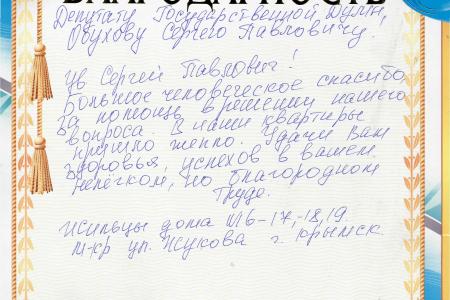 БЛАГОДАРНОСТЬ
Депутату Государственной Думы,
Обухову Сергею Павловичу.
Ув Сергей Павлович!
Большое человеческое спасибо
за помощь в решении нашего
вопроса. В наши квартиры
пришло тепло. Удачи Вам
здоровья, успехов в вашем
нелёгком, но благородном
труде.
Жильцы дома №16-17,-18,19
м-кр ул. Жукова г. Крымск